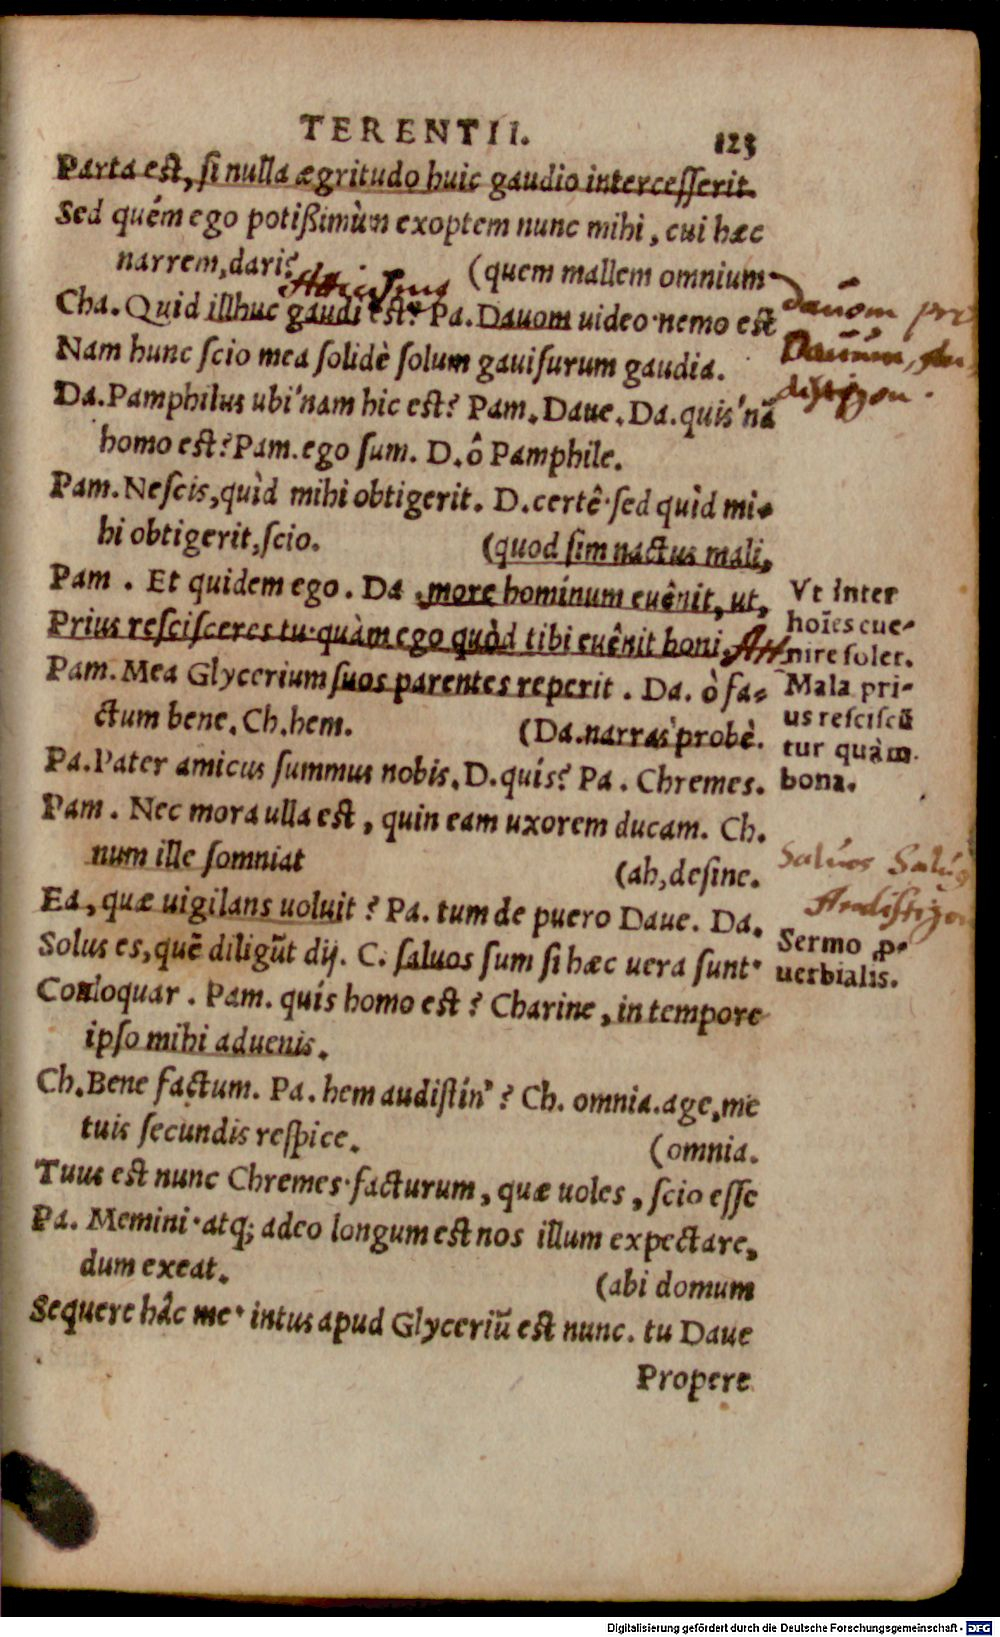 TERENTII.
123
Parta est, si nulla ægritudo huic gaudio intercesserit.
Sed quém ego potißimùm exoptem nunc mihi, cui hæc
narrem, dari? (quem mallem omnium
Atticismus
Cha. Quid illhuc gaudi est? Pa. Dauom uideo·nemo est
dauom pro
Dauum, An-
tistigon.
Nam hunc scio mea solidè solum gauisurum gaudia.
Da. Pamphilus ubi'nam hic est? Pam. Daue. Da. quis'nā
homo est? Pam. ego sum. D. ô Pamphile.
Pam. Nescis, quìd mihi obtigerit. D. certê·sed quìd mi-
hi obtigerit, scio. (quod sim nactus mali,
Pam. Et quidem ego. Da. more hominum euênit, ut,
Prius rescisceres tu·quàm ego quòd tibi euênit boni, Att.
Vt inter
hoīes eue-
nire solet.
Mala pri-
us resciscū
tur quàm
bona.
Pam. Mea Glycerium suos parentes reperit. Da. ò fa-
ctum bene. Ch. hem. (Da. narras' probè.
Pa. Pater amicus summus nobis. D. quís? Pa. Chremes.
Pam. Nec mora ulla est, quin eam uxorem ducam. Ch.
num ille somniat (ah, desine.
Ea, quæ uigilans uoluit? Pa. tum de puero Daue. Da.
Saluos Salus
Antistigon
Solus es, quē diligūt dij. C. saluos sum si hæc uera sunt·
Sermo ꝓ-
uerbialis.
Colloquar. Pam. quís homo est? Charine, in tempore
ipso mihi aduenis.
Ch. Bene factum. Pa. hem audistín'? Ch. omnia. age, me
tuis secundis respice. (omnia.
Tuus est nunc Chremes·facturum, quæ uoles, scio esse
Pa. Memini·atq; adeo longum est nos illum expectare,
dum exeat. (abi domum
Sequere hâc me· intus apud Glyceriū est nunc. tu Daue
Propere
Digitalisierung gefördert durch die Deutsche Forschungsgemeinschaft - DFG